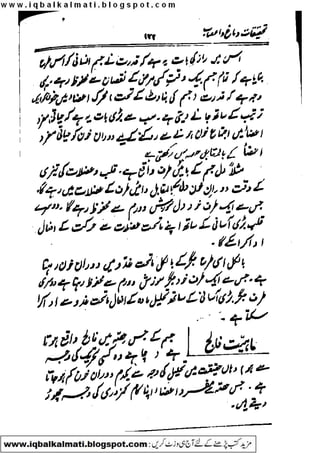 www.iqbalkalmati.blogspot.com
۱۳۲
اس میں راز کی بات یہ ہے کہ قدرت نے جسم انسانی کو اس طرح
بنایا ہے کہ تمام جسم بیک وقت کسی مرض کے نقصان سے محفوظ رہے۔ یہی
وجہ ہے کہ قدرت (جسم کی بناوٹ کے تحت) محرک اعضا میں خون کو ایک
ترتیب کے ساتھ جانے دیتی ہے۔ سب سے بڑی بات یہ ہے کہ حیاتی مفرد
اعضا میں اجتماع خون ہونے سے روکنے کے لیے دوران خون کو حیاتی مفرد
اعضا کے بالمقابل حصوں میں رکھتی ہے
مثلاً دل جسم کے بائیں طرف واقع ہے۔ قلب و عضلات کی تیزی
کے وقت دوران خون بالمقابل دائیں طرف کے عضلات میں رہے گا۔
جس سے ایک طرف خود دل سوزش و ورم سے محفوظ رہے گا۔ دوسرے
قلب بڑی آسانی کے ساتھ اپنے ماتحت عضلات سے حرکت کے افعال
ادا کرائے گا۔
بالکل اسی طرح جگر کے بالکل ماتحت غدود میں دوران خون رہتا
ہے۔ جس سے ایک طرف خود جگر سوزش و ورم سے محفوظ رہتا ہے دوسری
طرف جگر بڑی آسانی کے ساتھ تحلیل مادہ کے افعال ماتحت غدود سے ادا کرا
سکتا ہے۔
ماہیت فالج
جسم کے جس حصہ میں فالج واقع ہوتا
ہے، چاہے وہ کسی تحریک کی وجہ
سے ہو، وہاں حقیقت میں تحلیل کی وجہ سے یکدم دوران خون کم ہو جاتا
ہے۔ جس حصہ کے مفرد اعضا اپنا کام کمزوری کی وجہ سے چھوڑ
دیتے ہیں۔
مزید کتب پڑھنے کے لئے آج ہی وزٹ کریں : www.iqbalkalmati.blogspot.com